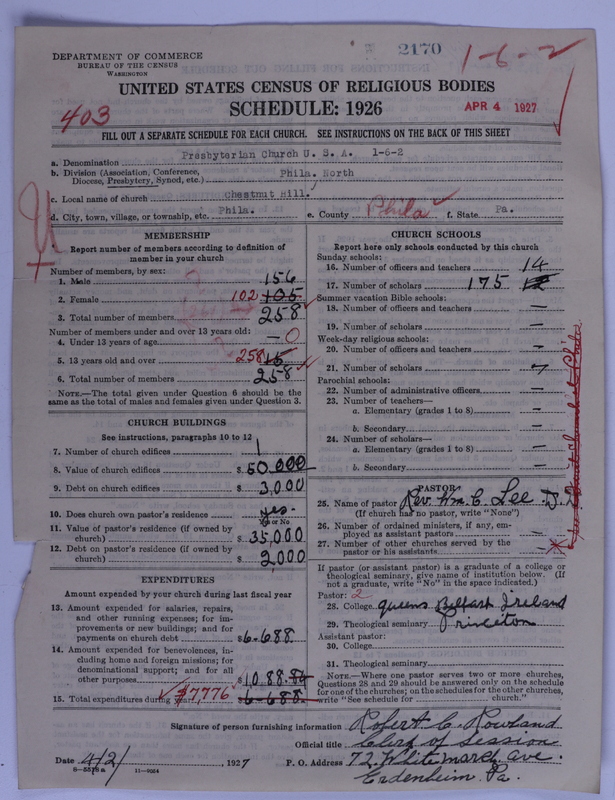 2170
1-6-2
DEPARTMENT OF COMMERCE
BUREAU OF THE CENSUS
WASHINGTON
UNITED STATES CENSUS OF RELIGIOUS BODIES
SCHEDULE: 1926
APR 4 1927
403
FILL OUT A SEPARATE SCHEDULE FOR EACH CHURCH. SEE INSTRUCTIONS ON THE BACK OF THIS SHEET
a. Denomination Presbyterian Church U. S. A. 1-6-2
b. Division (Association, Conference, Diocese, Presbytery, Synod, etc.) Phila. North
c. Local name of church Chestnut Hill
d. City, town, village, or township, etc. Phila. e. County Phila f. State Pa.
MEMBERSHIP
Report number of members according to definition of
member in your church
Number of members, by sex:
1. Male 156
2. Female 102 105
3. Total number of members 258
Number of members under and over 13 years old:
4. Under 13 years of age — 0
5. 13 years old and over 258 15
6. Total number of members 258
NOTE.—The total given under Question 6 should be
same as the total of males and females given under Question 3.
CHURCH BUILDINGS
See instructions, paragraphs 10 to 12
7. Number of church edifices 1
8. Value of church edifices $ 50.000
9. Debt on church edifices $ 3,000
10. Does church own pastor's residence? yes.
Yes or No
11. Value of pastor's residence (if owned by
church) $ 35,000
12. Debt on pastor's residence (if owned by
church) $ 2,000
EXPENDITURES
Amount expended by your church during last fiscal year
13. Amount expended for salaries, repairs,
and other running expenses; for im-
provements or new buildings; and for
payments on church debt $ 6-688
14. Amount expended for benevolences, in-
cluding home and foreign missions; for
denominational support; and for all
other purposes $ 1,088.
15. Total expenditures during year $7,776 $ 6-688
CHURCH SCHOOLS
Report here only schools conducted by this church
Sunday schools:
16. Number of officers and teachers 14
17. Number of scholars 175
Summer vacation Bible schools:
18. Number of officers and teachers —
19. Number of scholars —
Week-day religious schools:
20. Number of officers and teachers —
21. Number of scholars —
Parochial schools:
22. Number of administrative officers —
23. Number of teachers—
a. Elementary (grades 1 to 8) —
b. Secondary —
24. Number of scholars—
a. Elementary (grades 1 to 8) —
b. Secondary —
PASTOR
25. Name of pastor Rev. Wm. C. Lee D.D
(If church has no pastor, write "None")
26. Number of ordained ministers, if any, em-
ployed as assistant pastors —
27. Number of other churches served by the
pastor or his assistants —
If pastor (or assistant pastor) is a graduate of a college or
theological seminary, give name of institution below. (If
not a graduate, write "No" in the space indicated.)
Pastor: 2
28. College Queens Belfast Ireland
29. Theological seminary Princeton
Assistant pastor:
30. College
31. Theological seminary
NOTE.—Where one pastor serves two or more churches,
Questions 28 and 29 should be answered only on the schedule
for one of the churches; on the schedules for the other churches,
write "See schedule for church."
Signature of person furnishing information Robert C. Rowland
Official title Clerk of Session
Date 4/2/ 1927 P. O. Address 72 Whitemarsh Ave.
Erdenheim Pa.
8-5578a 11-9024